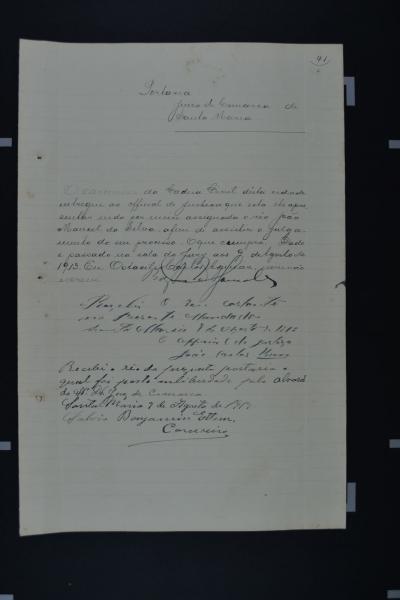 41
Portaria
Juizo de Comarca de
Santa Maria
O carcereiro da Cadea Civil desta cidade
entregue ao official de justiça que esta lhe apre
sentar indo por mim assignada o réo João
Manoel da Silva, afim de assistir o julga
mento de seu processo. O que cumpra. Dado
e passado na sala do Jury aos 9 de Agosto de
1913. Eu Octavio
escrevi.
Recebi o réo constante
no presente Mandado
Santa Maria 9 de Agosto de 1913
O Official de Justiça
João Carlos
Recebi o réo da presente portaria o
qual foi posto em liberdade pelo alvará
do Sr. Dr. Juiz de Comarca.
Santa Maria 9 de Agosto de 1913
Benjamin
Carcereiro